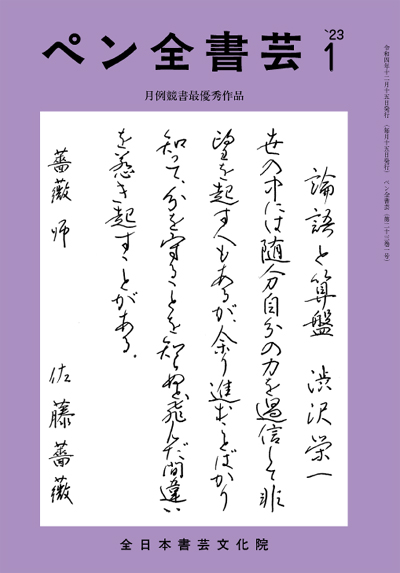 ペン全書芸 '23 1
月例競書最優秀作品
令和四年十二月十五日発行(毎月十五日発行) ペン全書芸
論語と算盤 渋沢栄一
世の中には随分自分の力を過信して非
望を起す人もあるが、余り進むことばかり
知って、分を守ることを知らぬと飛んだ間違い
を惹き起すことがある。
薔薇師 佐藤薔薇
全日本書芸文化院